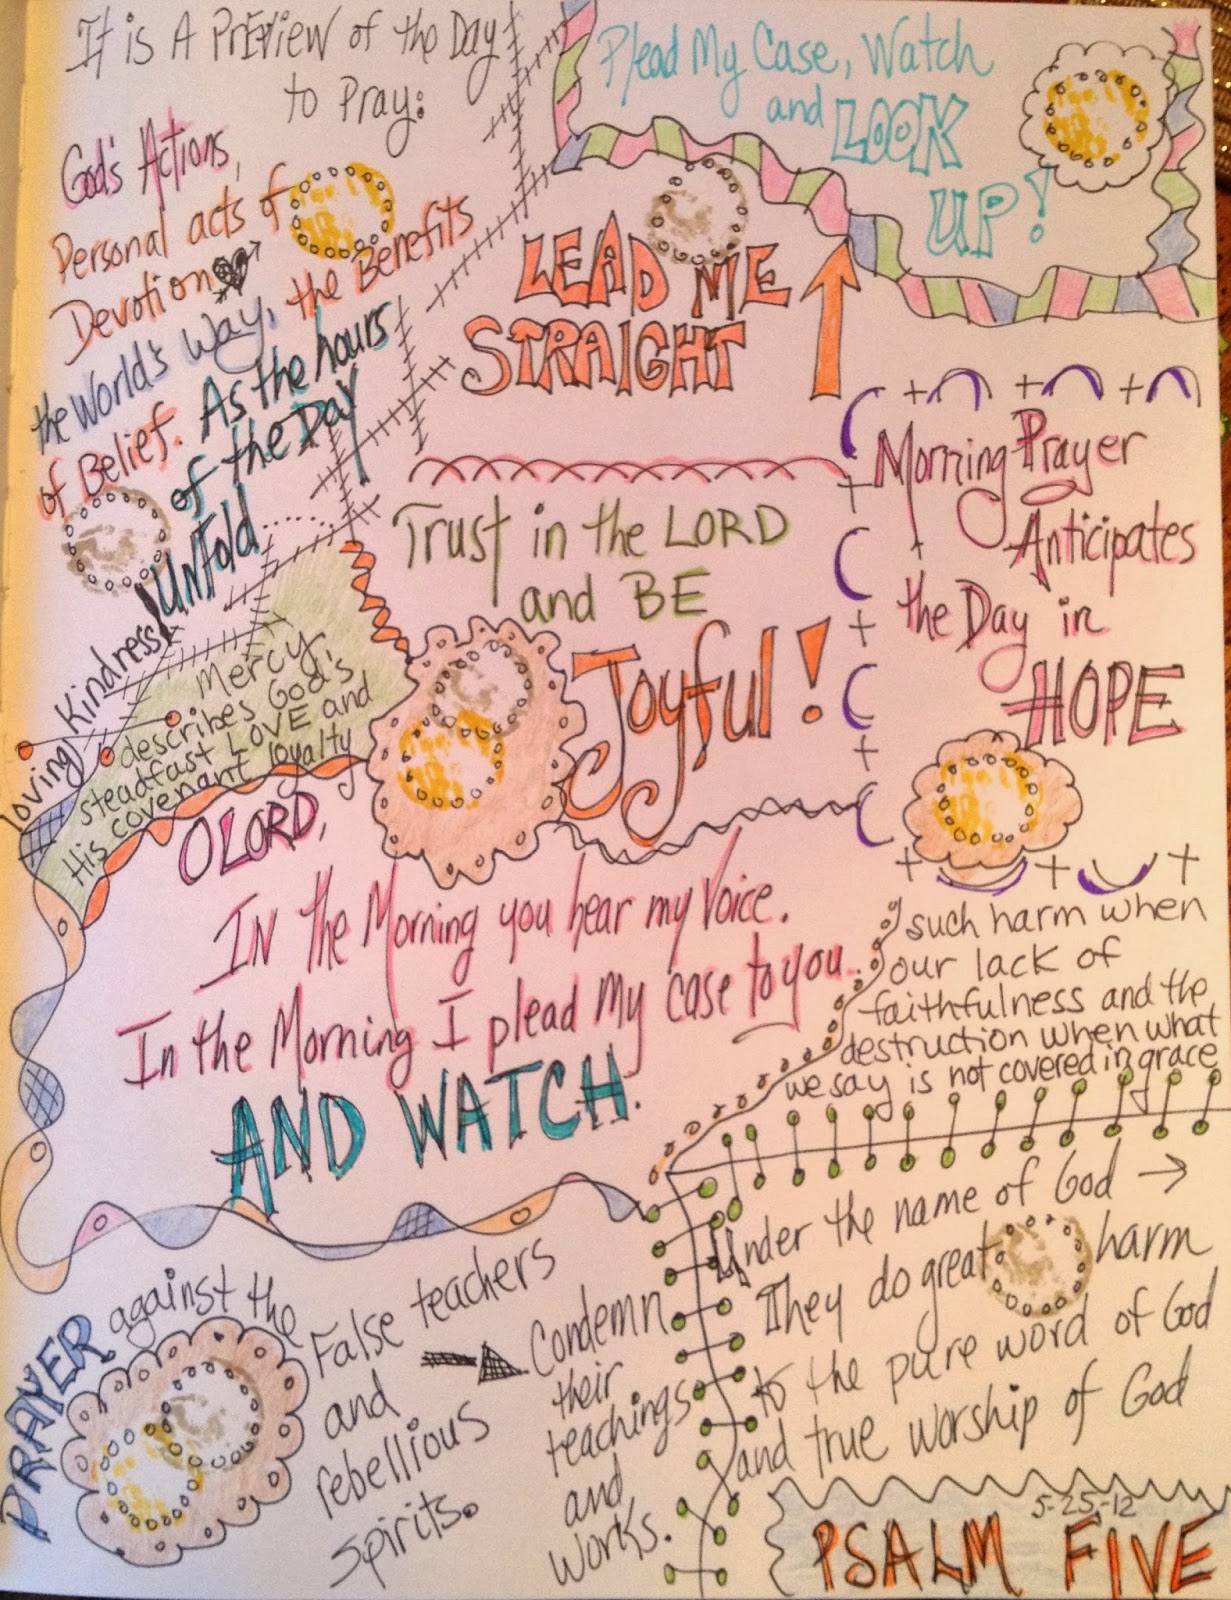 It is A PrEView of the Day
to Pray:
God's Actions,
Personal acts of
Devotion
the World's Way, the Benefits
of Belief. As the hours
of the Day
Unfold
loving Kindness/
Mercy,
describes God's
steadfast LOVE and
His covenant loyalty
Plead My Case, Watch
and LOOK
UP!
LEAD ME
STRAIGHT
Trust in the LORD
and BE
Joyful!
Morning Prayer
Anticipates
the Day in
HOPE
O LORD,
IN the Morning you hear my Voice.
In the Morning I plead My case to you
AND WATCH.
such harm when
our lack of
faithfulness and the
destruction when what
we say is not covered in grace
PRAYER against the
False teachers
and
rebellious
spirits.
Condemn
their
teachings
and
works.
Under the name of God
They do great harm
to the pure word of God
and true worship of God
5-25-12
PSALM FIVE